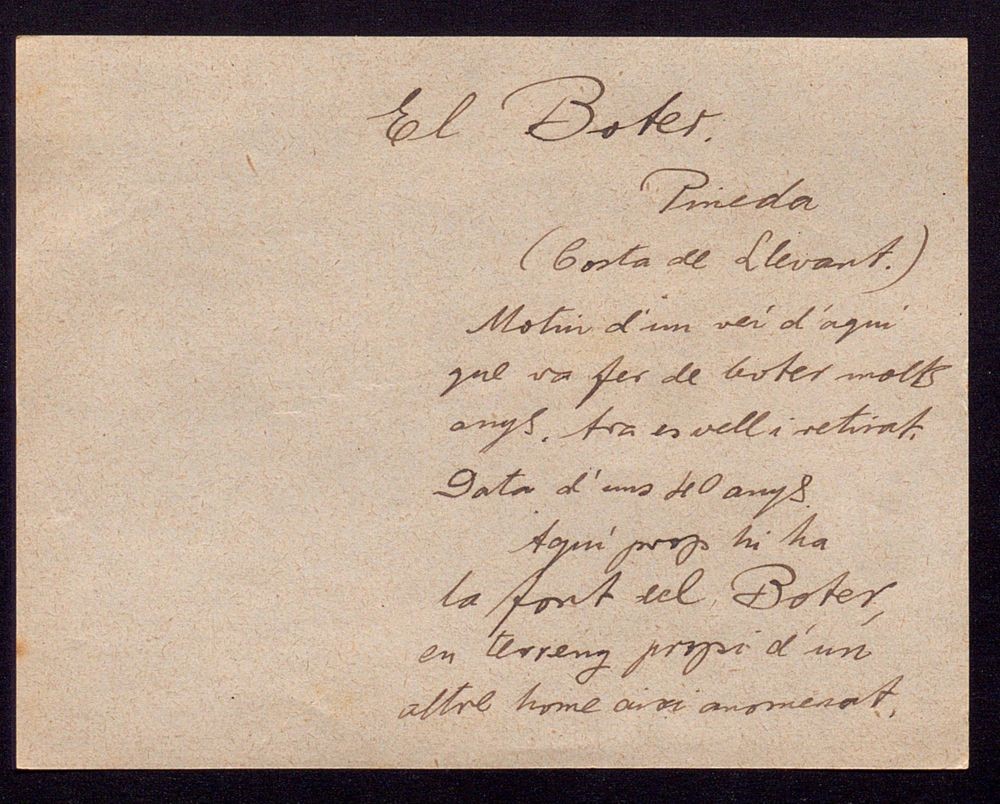 El Boter.
Pineda
(Costa de Llevant.)
Motiu d'un veí d'aquí
que va fer de boter molts
anys. Ara es vell i retirat.
Data d'uns 40 anys
Aquí prop hi ha
la font del Boter,
en terreny propi d'un
altre home aixi anomenat.